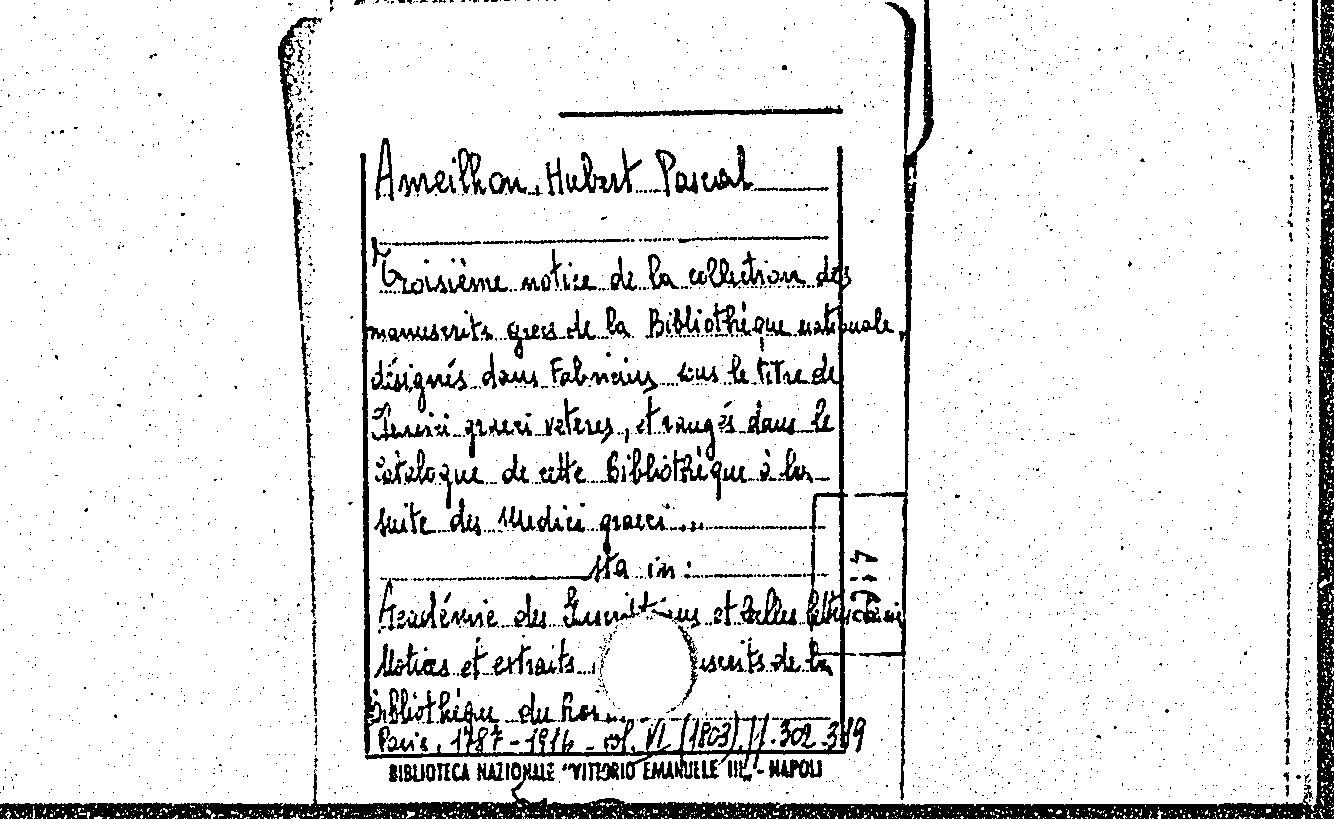 Ameilhon, Hubert Pascal
Troisième notice de la collection des
manuscrits grecs de la Bibliothèque nationale,
désignés dans Fabricius sous le titre de
graeci veteres, et rangés dans le
catalogue de cette Bibliothèque à la
suite des Medici graeci...
Sta in:
Académie des Inscriptions et Belles lettres
Notices et extraits uscrits de la
Bibliothèque du
Paris, 1787-1916 - vol. VI (1803), 302-319
BIBLIOTECA NAZIONALE "VITTORIO EMANUELE III„ - NAPOLI